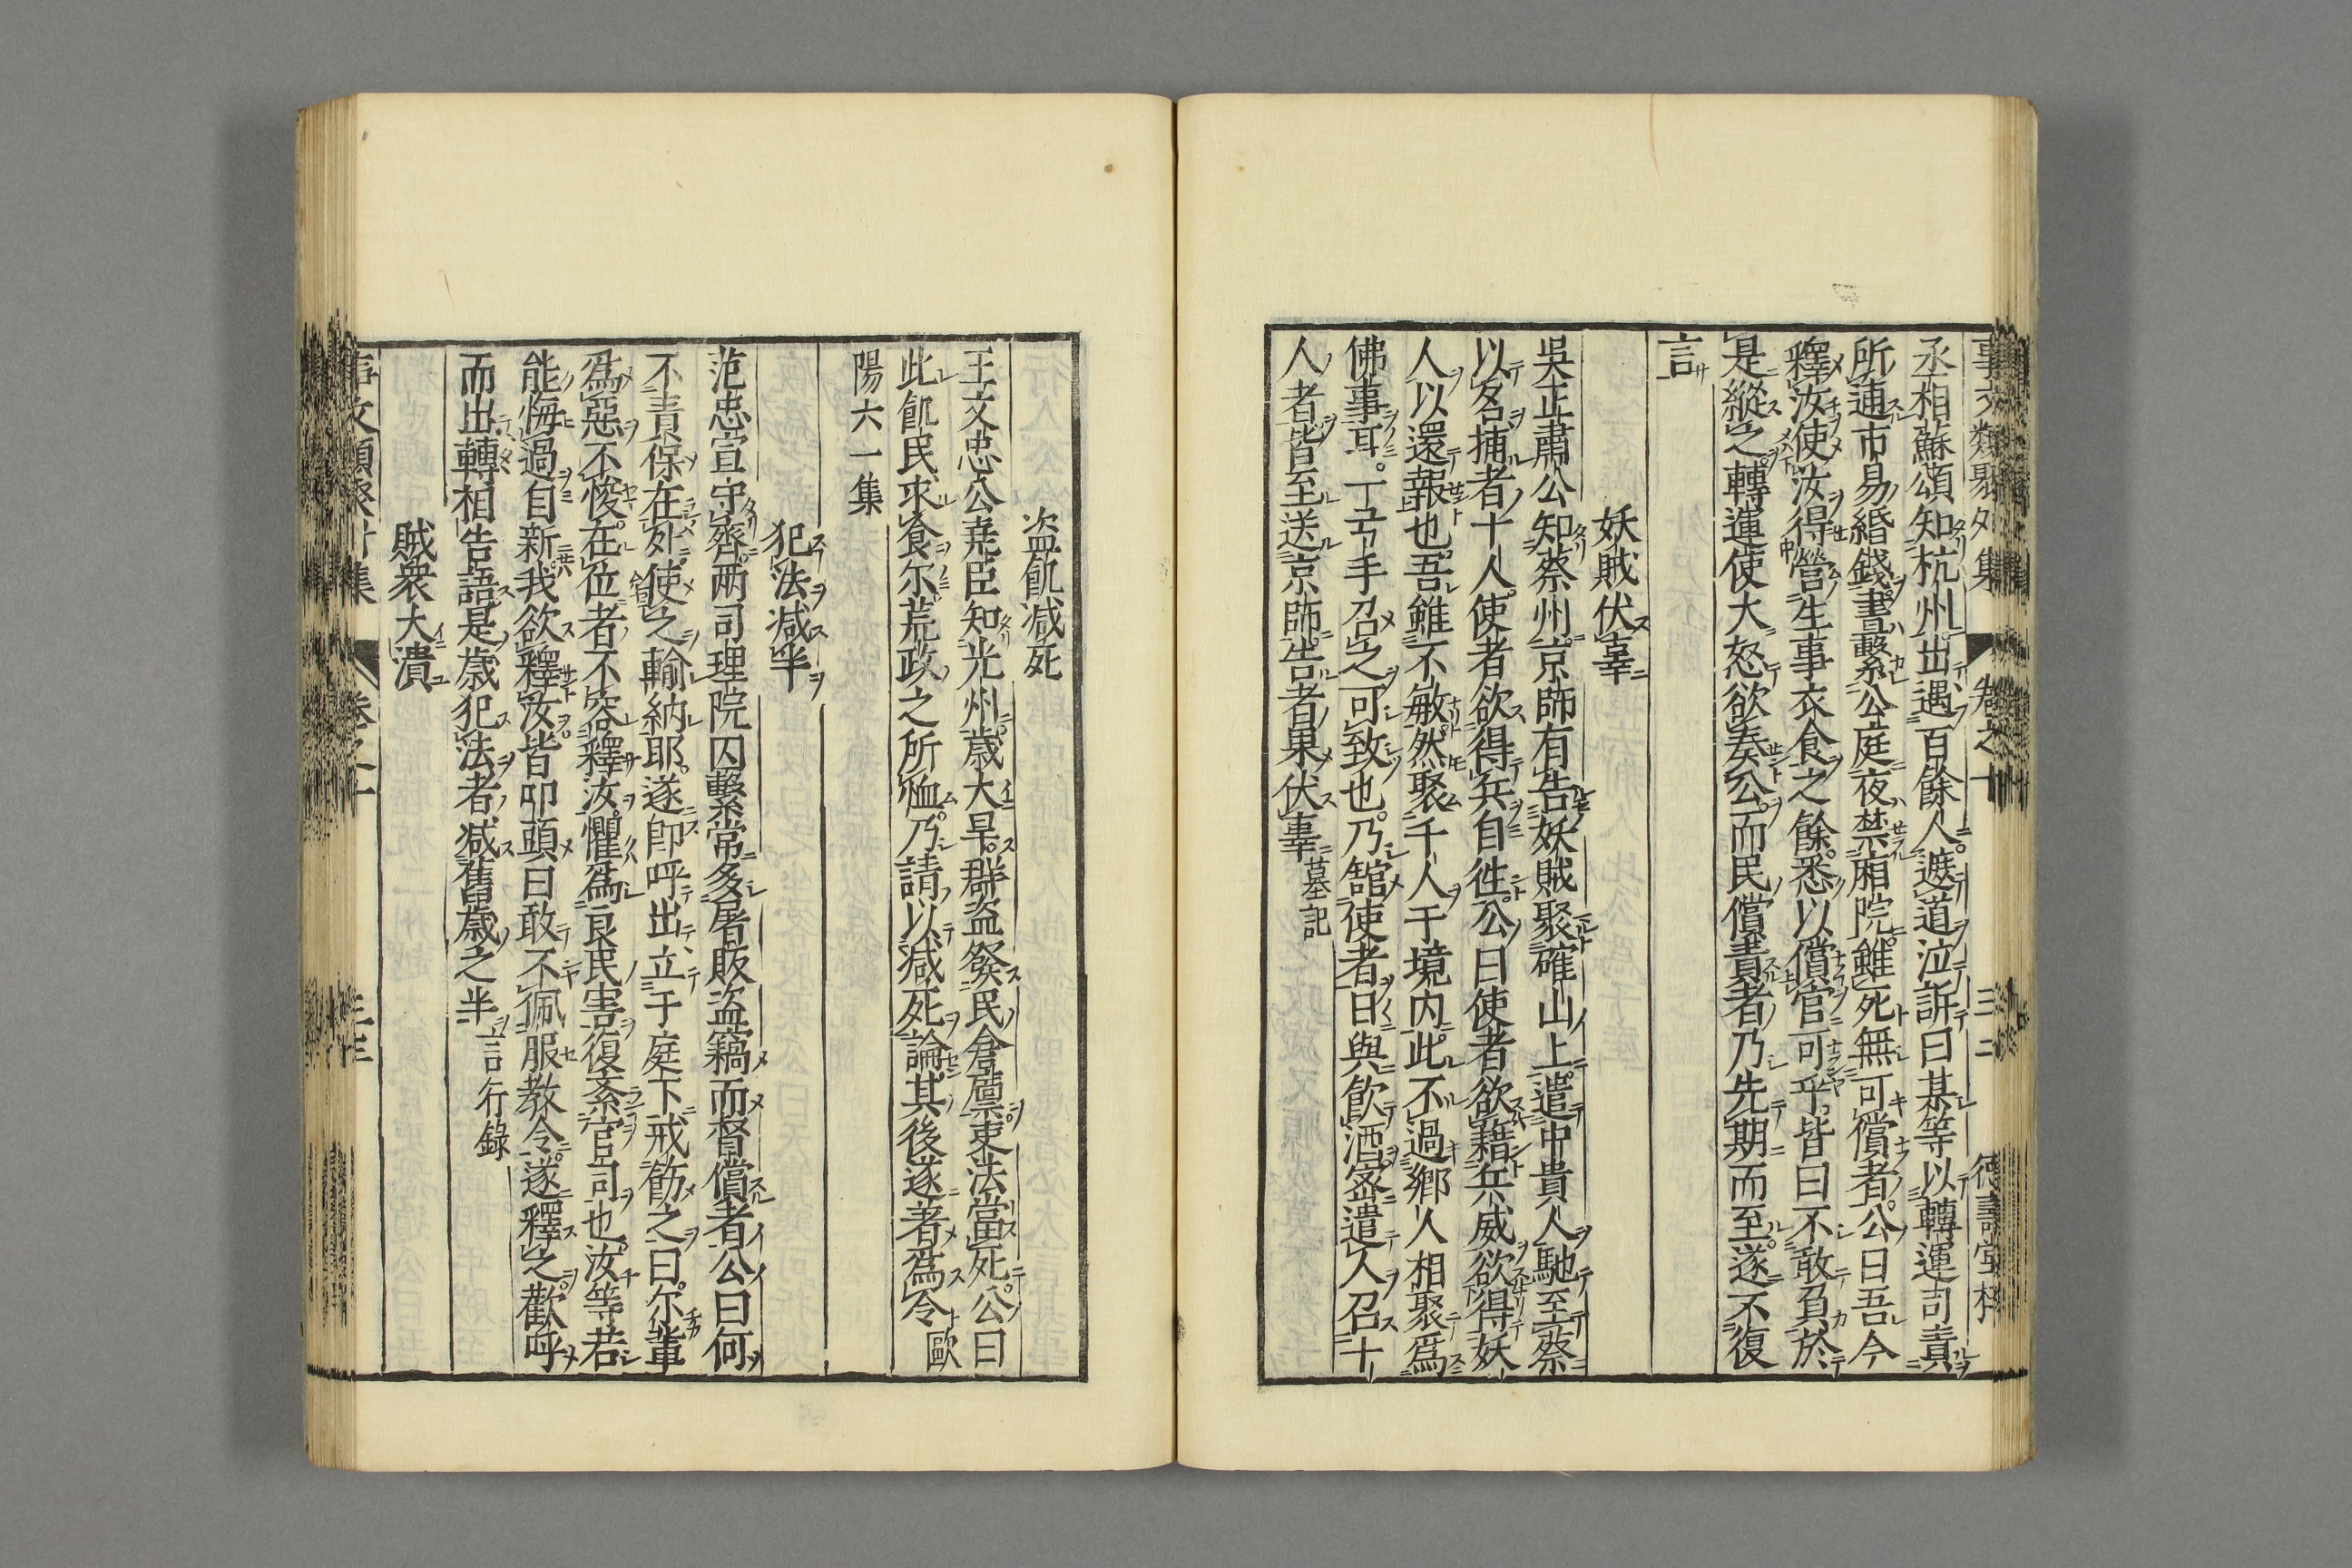 事文類聚外集 卷之十 三二 德壽堂梓
丞相蘇頌知杭州出遇百餘人遮道泣訴曰某等以轉運司責
所逋市易緡錢晝繫公庭夜禁廂院雖死無可償者公曰吾今
釋汝使汝得營生事衣食之餘悉以償官可乎皆曰不敢負於
是縱之轉運使大怒欲奏公而民償責者乃先期而至遂不復
言
妖賊伏辜
吳正肅公知蔡州京師有告妖賊聚確山上遣中貴人馳至蔡
以名捕者十人使者欲得兵自徃公曰使者欲藉兵威欲得妖
人以還報也吾雖不敏然聚千人于境内此不過鄉人相聚爲
佛事耳一弓手召之可致也乃館使者日與飲酒宻遣人召十
人者皆至送京師告者果伏辜墓記
盗飢减死
王文忠公堯臣知光州歳大旱群盗發民倉廩吏法當死公曰
此飢民求食尔荒政之所恤乃請以减死論其後遂著爲令歐
陽六一集
犯法减半
范忠宣守齊两司理院囚繫常多屠販盗竊而督償者公曰何
不責保在外使之輸納耶遂即呼出立于庭下戒飭之曰尔輩
爲惡不悛在位者不容釋汝懼爲良民害復紊官司也汝等若
能悔過自新我欲釋汝皆叩頭曰敢不佩服教令遂釋之歡呼
而出轉相告語是歳犯法者减舊歳之半言行錄
賊衆大潰